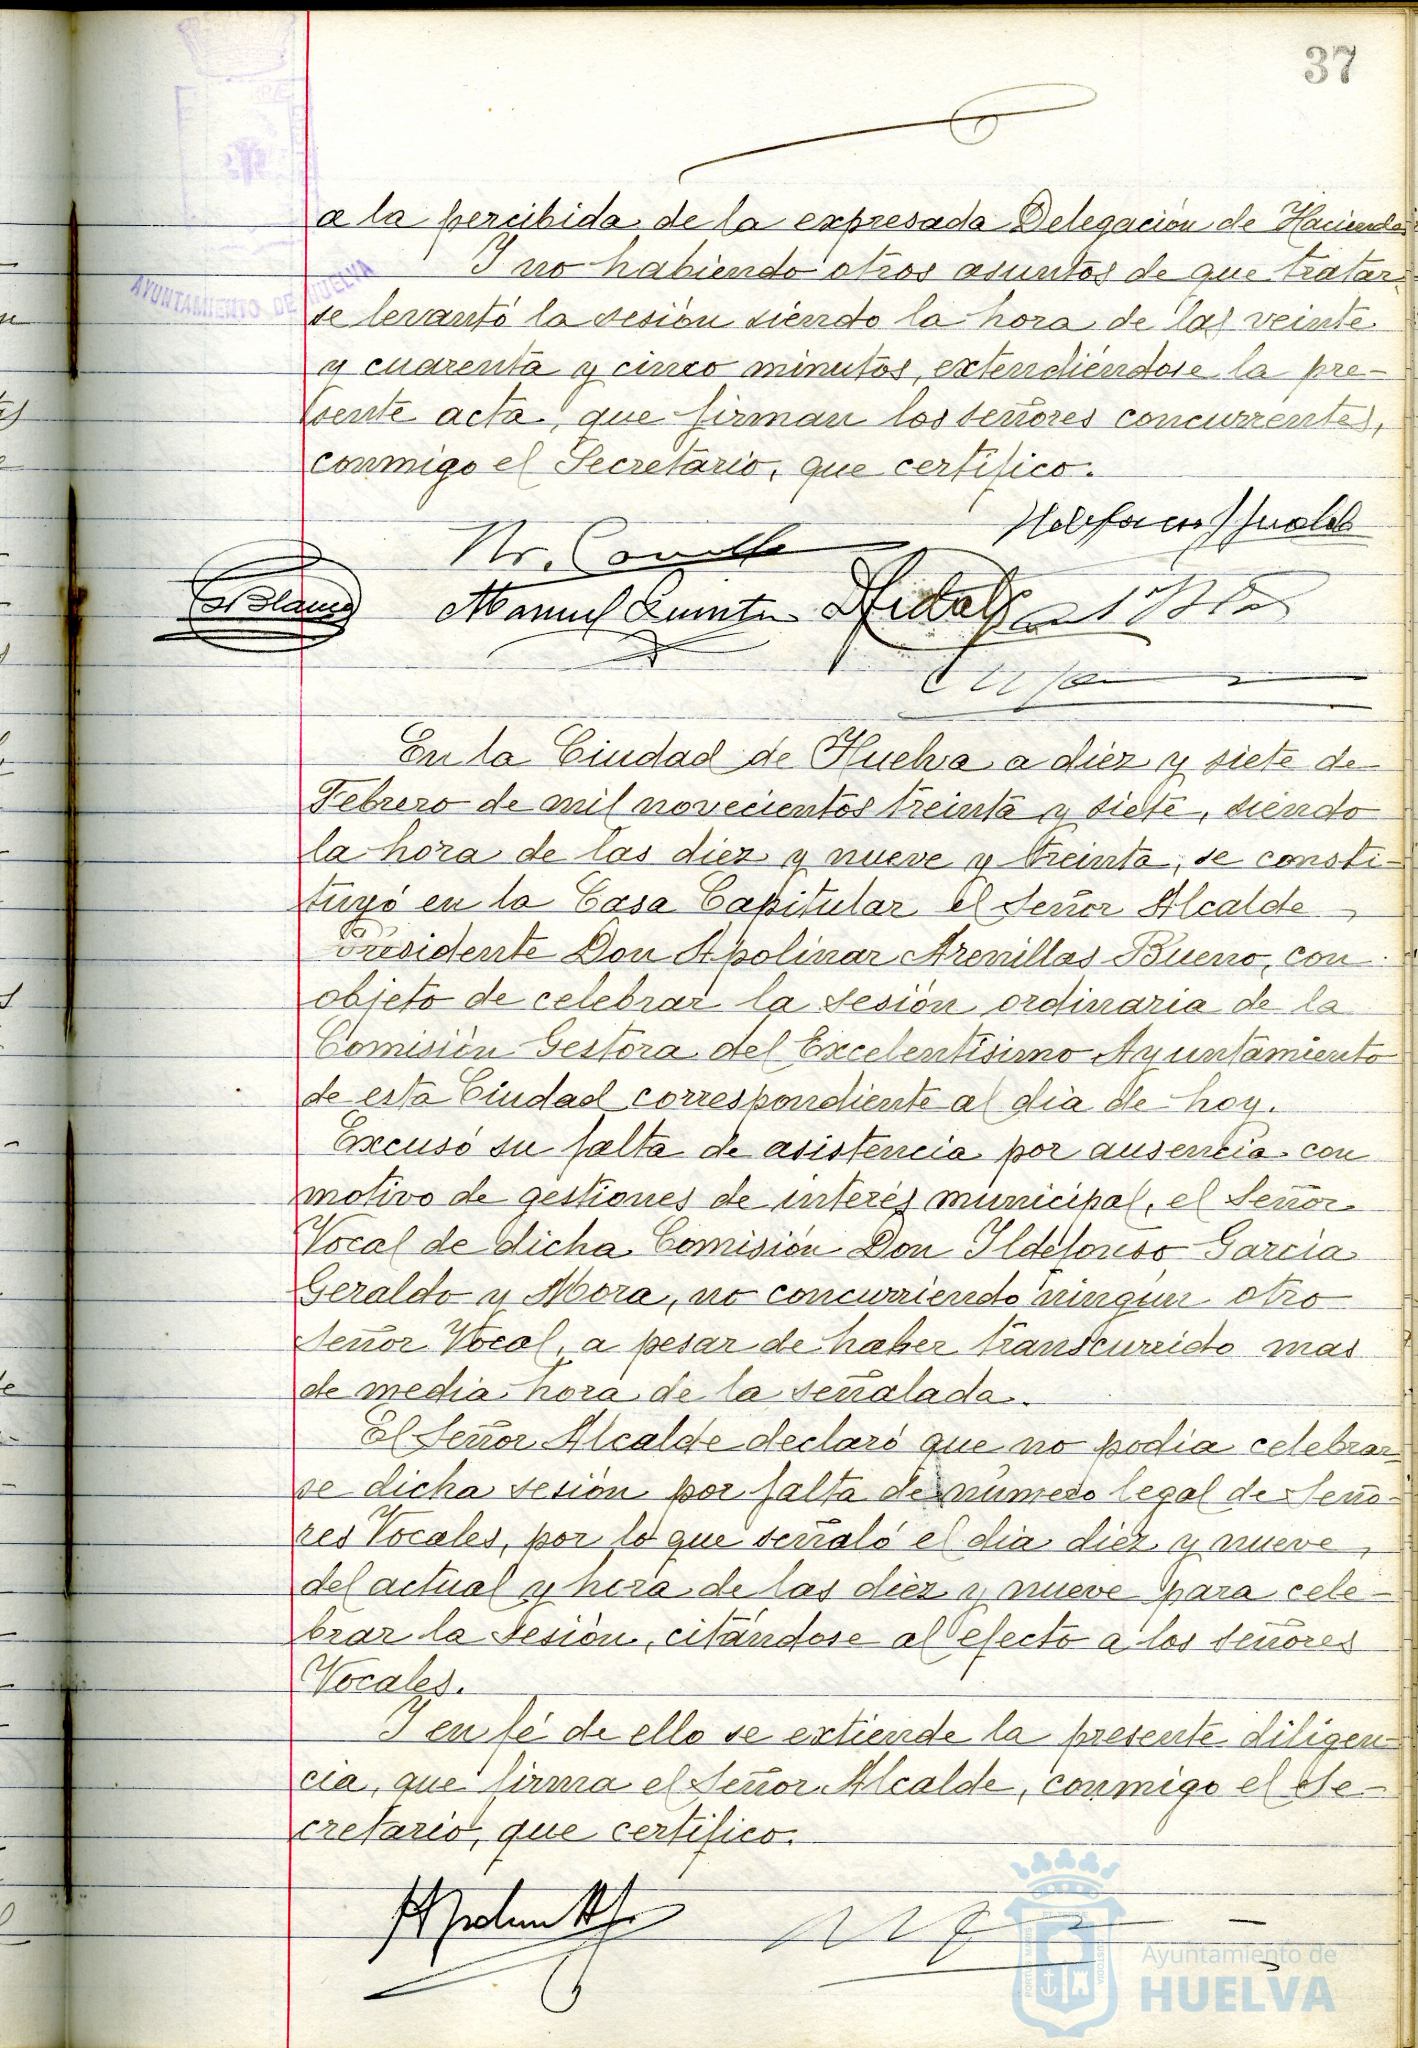 37
AYUNTAMIENTO DE HUELVA
a la percibida de la expresada Delegación de Hacienda.
Y no habiendo otros asuntos de que tratar
se levantó la sesión siendo la hora de las veinte
y cuarenta y cinco minutos, extendiéndose la pre-
sente acta, que firman los señores concurrentes,
conmigo el Secretario, que certifico.
Manuel Quinta
En la Ciudad de Huelva a diez y siete de
Febrero de mil novecientos treinta y siete, siendo
la hora de las diez y nueve y treinta, se consti-
tuyó en la Casa Capitular el Señor Alcalde
Presidente Don Apolinar Arenillas Bueno, con
objeto de celebrar la sesión ordinaria de la
Comisión Gestora del Excelentísimo Ayuntamiento
de esta Ciudad correspondiente al día de hoy.
Excusó su falta de asistencia por ausencia con
motivo de gestiones de interés municipal, el Señor
Vocal de dicha Comisión Don Ildefonso Garcia
Geraldo y Mora, no concurriendo ningún otro
Señor Vocal, a pesar de haber transcurrido mas
de media hora de la señalada.
El Señor Alcalde declaró que no podía celebrar-
se dicha sesión por falta de número legal de Seño-
res Vocales, por lo que señaló el dia diez y nueve
del actual y hora de las diez y nueve para cele-
brar la sesión, citándose al efecto a los señores
Vocales.
Y en fé de ello se extiende la presente diligen-
cia, que firma el Señor Alcalde, conmigo el Se-
cretario, que certifico.
Ayuntamiento de
HUELVA